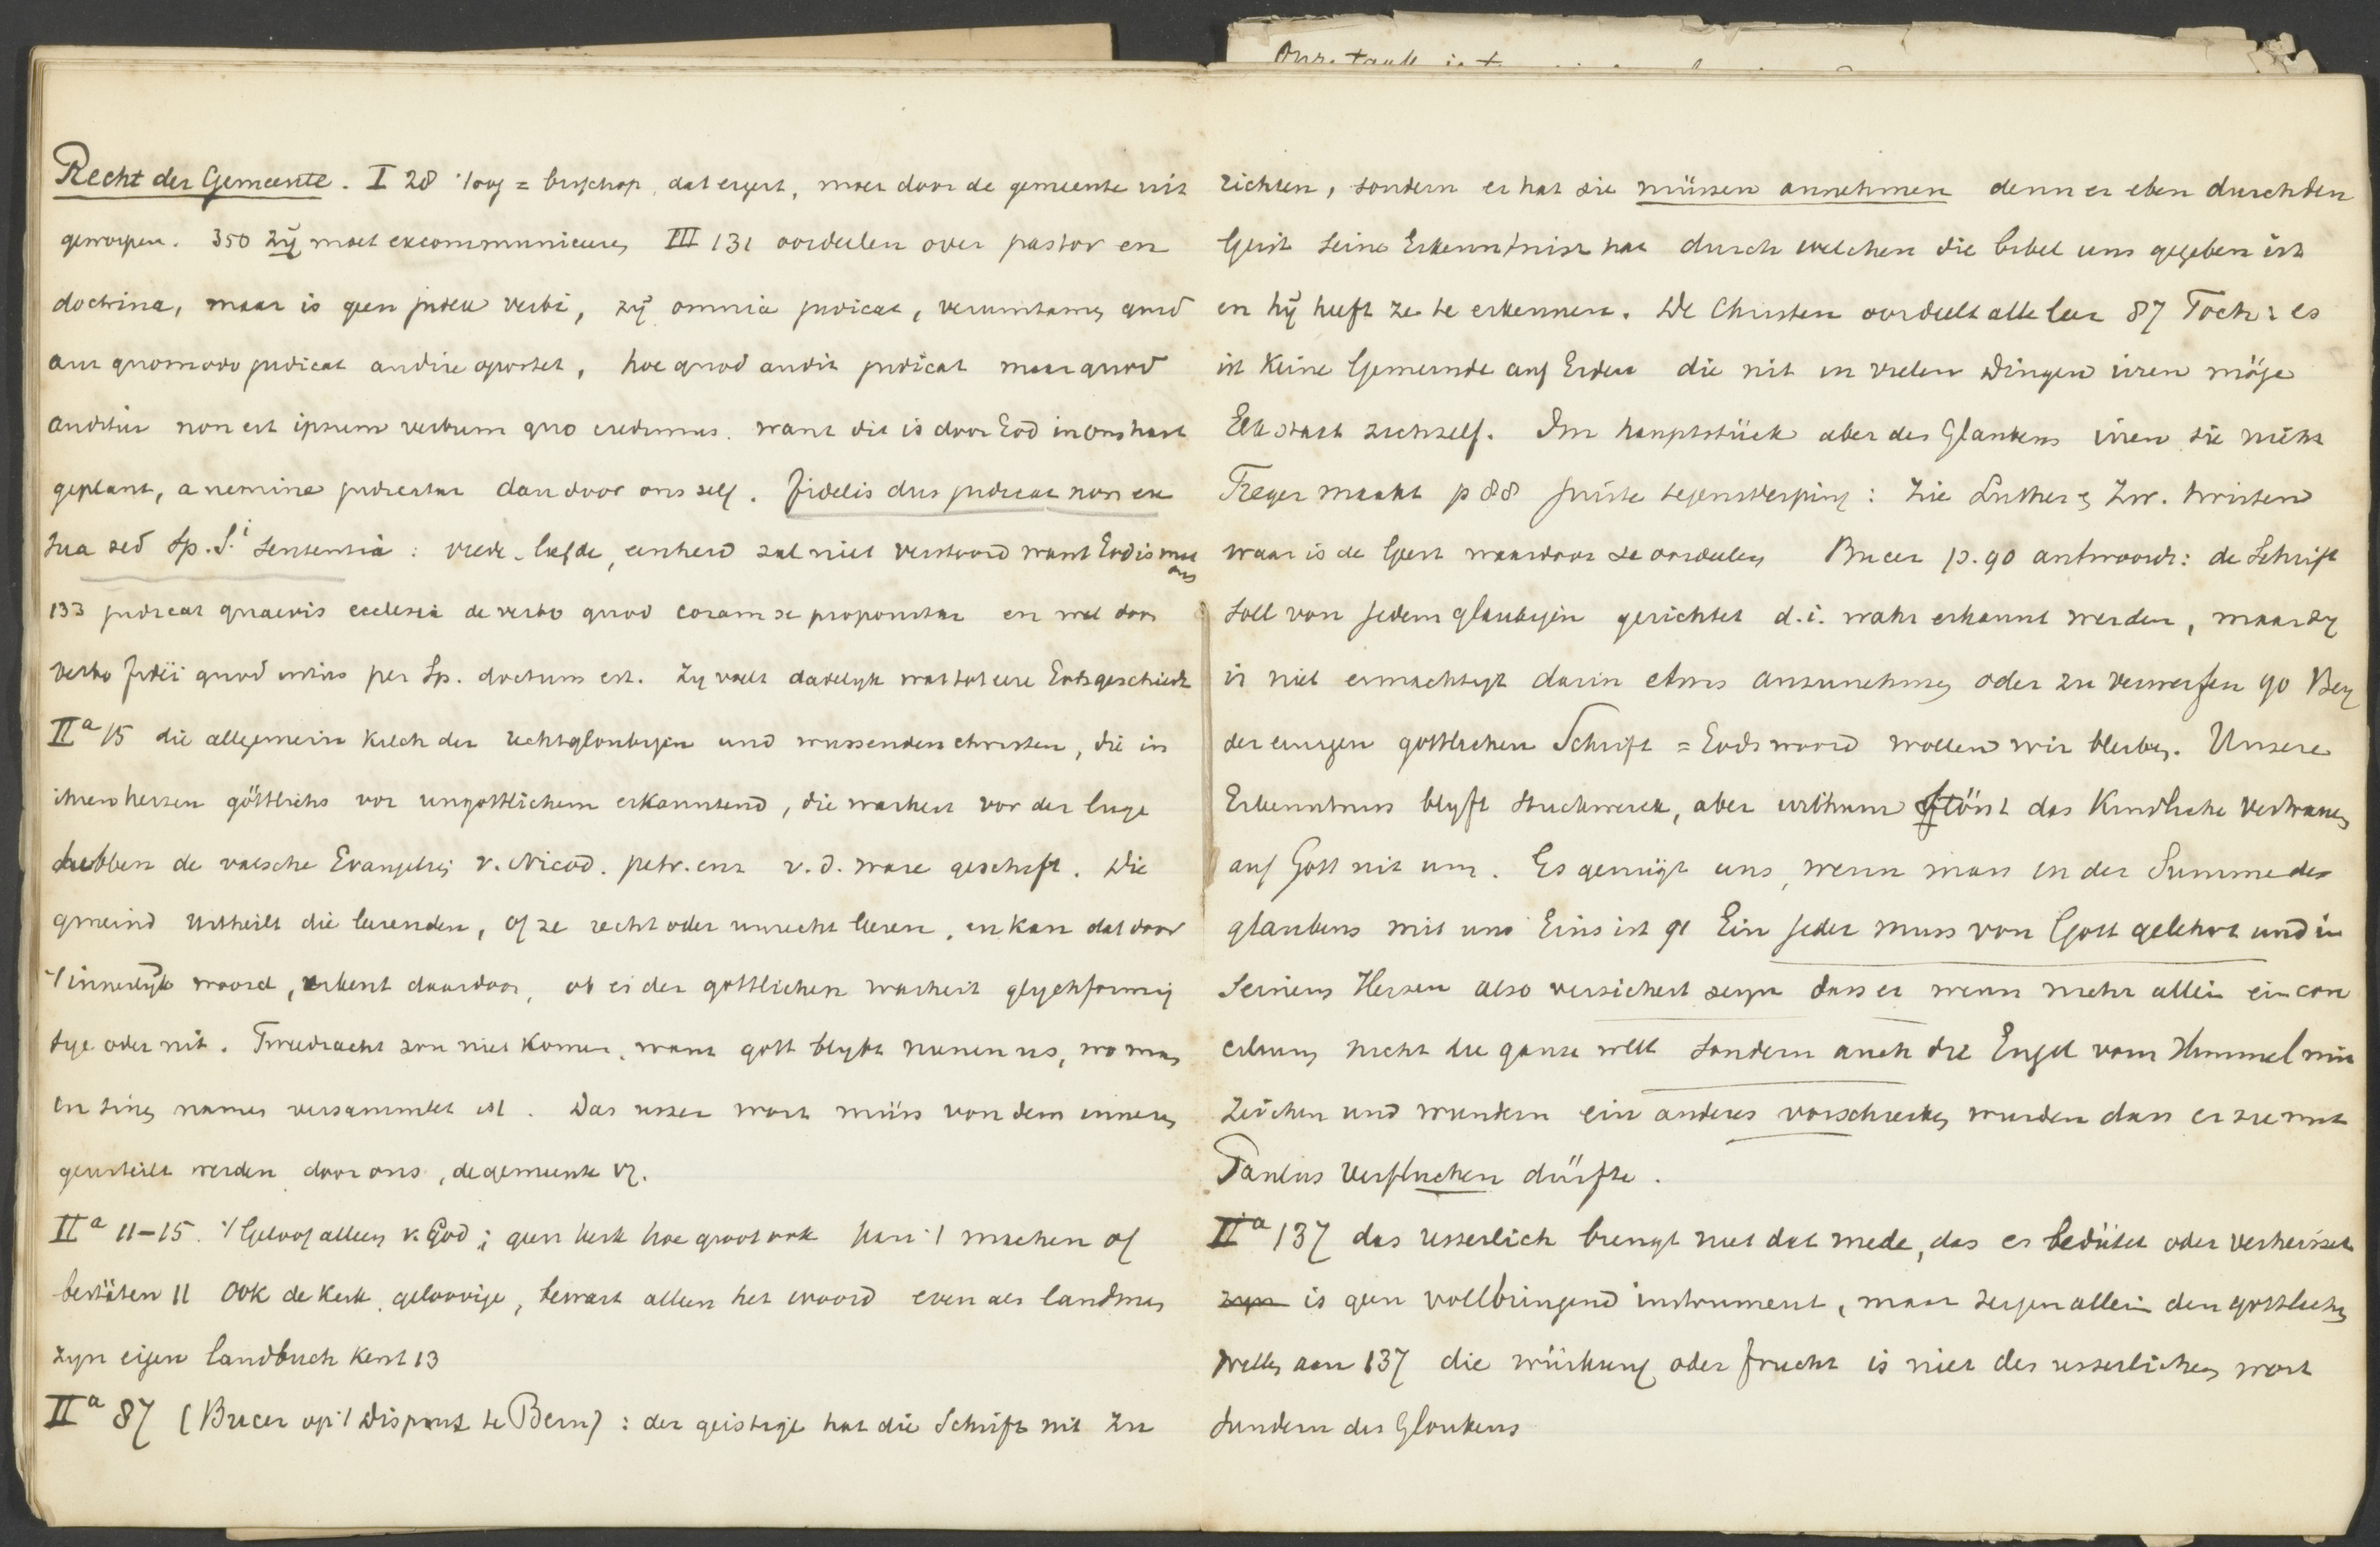 Onze taak is
Recht der Gemeente. I 28 't oog = bisschop, dat ergert, moet door de gemeente uit
geworpen. 350 zÿ moet excommuniceren III 131 oordeelen over pastor en
doctrina, maar is geen judex verbi, zÿ omnia judicat, veruntamen quid
aut quomodo judicat audire oportet, hoc quod audit judicat maar quod
auditur non est ipsum verbum quo credimus. want dit is door God in ons hart
geplant, a nemine judicatur dan door ons zelf. fidelis dus judicat non ex
sua sed Sp. S.i sententia: vrede, liefde, eenheid zal niet verstoord want God is met
ons
133 judicat quaevis ecclesia de verbo quod coram se proponitur en wel door
verbo fidei quod intus per Sp. doctum est. Zy voelt dadelyk wat tot eere Gods geschiedt
IIa 15 die allgemein kilch der rechtgloubigen und wussenden christen, die in
ihren herzen göttlichs vor ungottlichem erkanntend, die warheit vor der luge
hebben de valsche Evangelien v. Nicod. petr. enz v. d. ware geschift. Die
gmeind urtheilt die lerenden, of ze recht oder unrecht leren, en kan dat door
't innerlyk woord, erkent daardoor, ob ei der gottlichen warheit glychformig
sye oder nit. Tweedracht zou niet komen, want gott blybt nienen us, wo man
in sinen namen versammlet ist. Das usser wort müss von dem inneren
geurteilt werden door ons, de gemeente vz.
IIa 11-15. 't Geloof alleen v. God; geen kerk hoe groot ook kan 't machen of
bestäten 11 Ook de kerk, geloovige, bewart alleen het woord even als landman
zyn eigen landbuch kent 13
IIa 87 (Bucer op 't Disput te Bern): der geistige hat die Schrift nit zu
richten, sondern er hat sie müssen annehmen denn er eben durch den
Geist seine Erkenntniss hat durch welchen die bibel uns gegeben ist
en hÿ heeft ze te erkennen. De Christen oordeelt alle leer 87 Toch: es
ist keine Gemeinde auf Erden die nit in vielen Dingen irren möge
Elk staat zichzelf. Im hauptstück aber des Glaubens irren sie nicht
Treger maakt p 88 juiste tegenwerping: Zie Luther en Zw. twisten
waar is de Geest waardoor ze oordeelen Bucer p. 90 antwoordt: de Schrift
soll von jedem glaubigen gerichtet d.i. wahr erkannt werden, maar zy
is niet ermachtigt darin etwas anzunehmen oder zu verwerfen 90 Bey
der einigen gottlichen Schrift = Gods woord wollen wir bleiben. Unsere
Erkenntnus blyft stuckwerck, aber irrthum stösst das kindliche Vertrauen
auf Gott nit um. Es genügt uns, wenn man in der Summe des
glaubens mit uns Eins ist 91 Ein jeder muss von Gott gelehrt und in
seinem Herzen also versichert seyn dass er wenn mehr allein ein con
cilium nicht die ganze welt sondern auch die Engel vom Himmel mit
zeichen und wundern ein anderes vorschreiben wurden dass er sie mit
Paulus verfluchen dürfte.
IIa 137 das usserlich brengt niet dat mede, das es bedütet oder verheisset
zyn is geen vollbringend instrument, maar zeigen allein den gottlichen
willen aan 137 die würkung oder frucht is niet des usserlichen wort
sundern des Gloubens